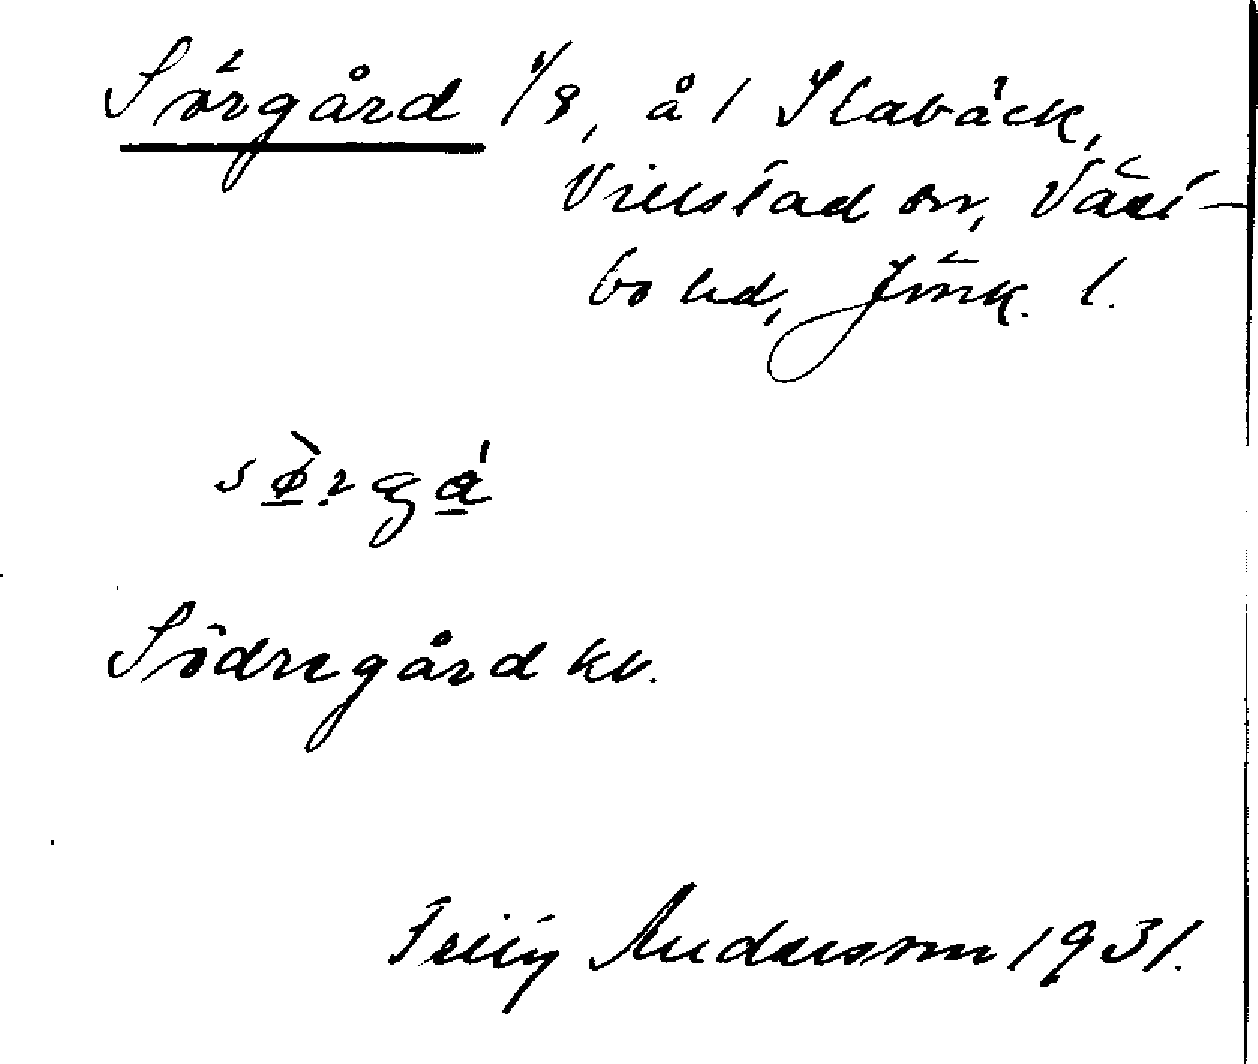 Sörgård 1/8, å 1 Slabäck,
Villstad sn, Väst-
bo hd, Jönk. l.
sø̀rgá
Södregård kv.
Andersson 1931.